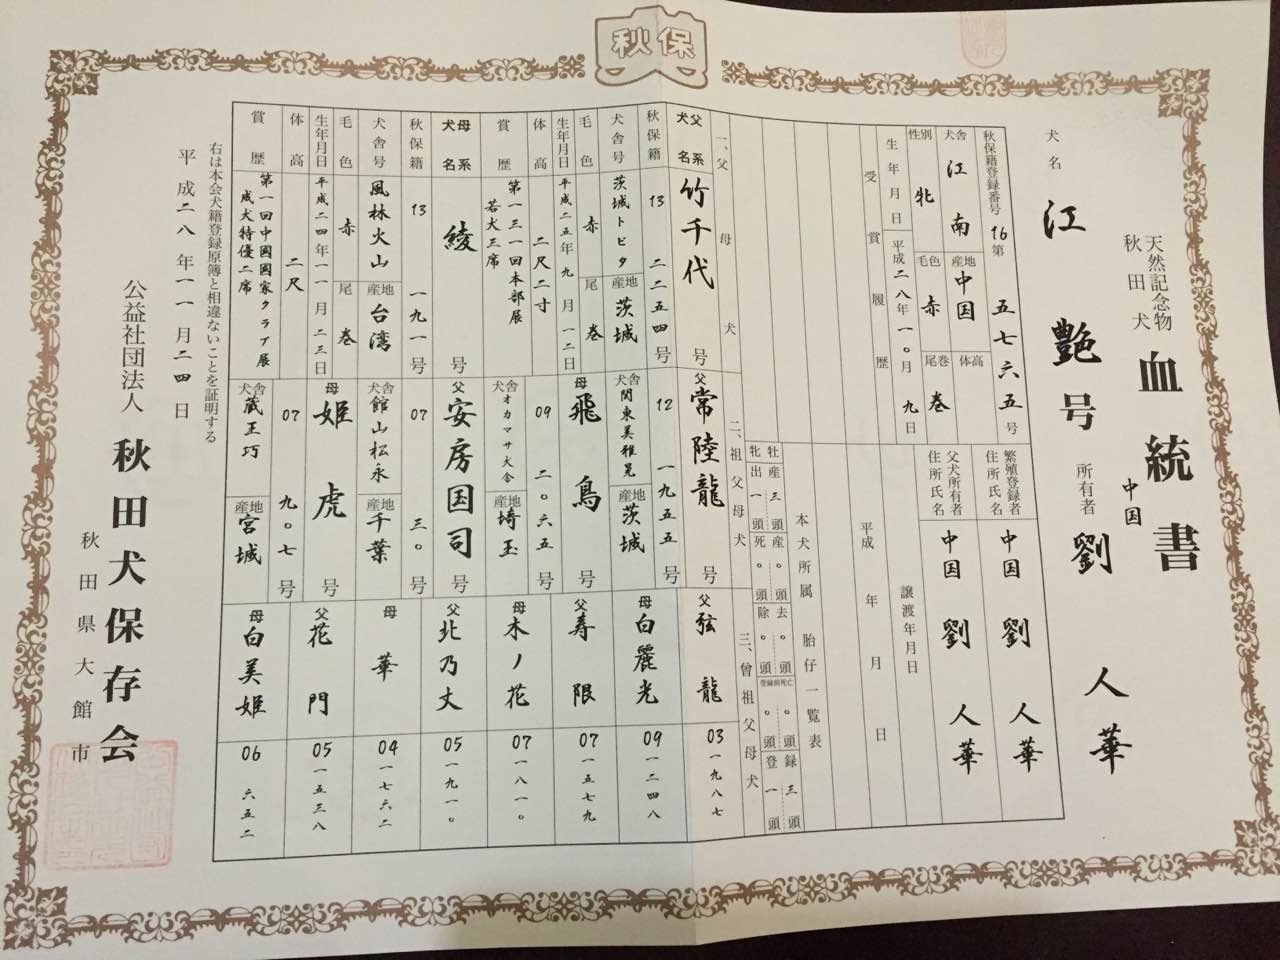 秋保
天然記念物
秋田犬
血統書
犬名 江艶号
所有者 中国 劉人華
秋保籍登録番号 16第 五七六五号
犬舎 江南 産地 中国 体高
性別 牝 毛色 赤 尾巻 巻
生年月日 平成二八年一〇月九日
受賞履歴
繁殖登録者住所氏名 中国 劉人華
父犬所有者住所氏名 中国 劉人華
譲渡年月日
平成 年 月 日
本犬所属胎仔一覧表
牡産三頭 産〇頭 去〇頭 〇頭 録三頭
牝出一頭 死〇頭 除〇頭 登録前死亡〇頭 登一頭
一、父母犬
二、祖父母犬
三、曾祖父母犬
父系犬名 竹千代号
秋保籍 13 二二五四号
犬舎号 茨城トビタ 産地 茨城
毛色 赤 尾 巻
生年月日 平成二五年九月一二日
体高 二尺二寸
賞歴 第一三一回本部展
若犬三席
母系犬名 綾号
秋保籍 13 一九一号
犬舎号 風林火山 産地 台湾
毛色 赤 尾 巻
生年月日 平成二四年一一月二三日
体高 二尺
賞歴 第一回中國國家クラブ展
成犬特優二席
父 常陸龍号
12 一九五五号
犬舎 関東美雅晃 産地 茨城
母 飛鳥号
09 二〇六五号
犬舎 オカマサ犬舎 産地 埼玉
父 安房国司号
07 三〇号
犬舎 館山松永 産地 千葉
母 姫虎号
07 九〇七号
犬舎 蔵王巧 産地 宮城
父 弦龍 03 一九八七
母 白麗光 09 一二四八
父 寿限 07 一五七九
母 木ノ花 07 一八一〇
父 北乃丈 05 一九一〇
母 華 04 一七六二
父 花門 05 一五三八
母 白美姫 06 六五二
右は本会犬籍登録原簿と相違ないことを証明する
平成二八年一一月二四日
公益社団法人 秋田犬保存会
秋田県大館市